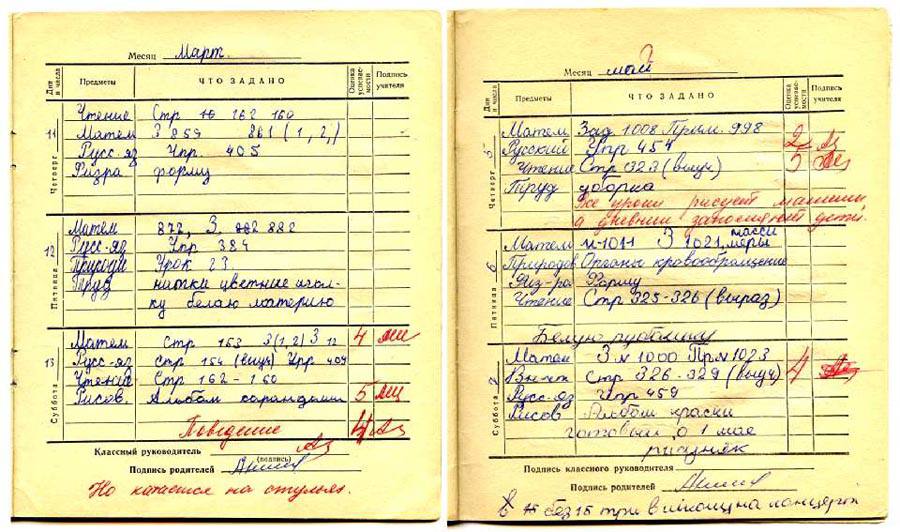 Месяц Март.
Дни и числа Предметы ЧТО ЗАДАНО Оценка успеваемости Подпись учителя
Четверг 11
Чтение Стр 162 160
Матем З 859 861 (1, 2,)
Русс-яз Упр. 405
Физра форма
Пятница 12
Матем 872, З. 882
Русс-яз Упр 384
Природ Урок 23
Труд нитки цветные игол-
ку белаю материю
Суббота 13
Матем Стр 163 З(1,2) З 12 4
Русс-яз Стр 154 (выуч) Упр 409
Чтение Стр 162-160
Рисов. Альбом карандаши 5
Поведение 4
Классный руководитель
(подпись)
Подпись родителей
Но катается на стульях.
Месяц май
Дни и числа Предметы ЧТО ЗАДАНО Оценка успеваемости Подпись учителя
Четверг 5
Матем Зад 1008 Прим. 998
Русский Упр 454 2
Чтение Стр 323 (выуч) 5
Труд уборка
Все уроки рисует машины,
а дневник заполняют дети.
Пятница 6
Матем N-1011 З 1021, массы меры
Природов Органы кровообращение
Физ-ра Форму
Чтение Стр 325-326 (выраз)
Белую рубашку
Суббота
Матем З N 1000 Пр N 1023
Вн-чт Стр 326-329 (выуч) 4
Русс-яз Упр 459
Рисов Альбом краски
готовый о 1 мае
рисунок
Подпись классного руководителя
Подпись родителей
в без 15 три в на концерт